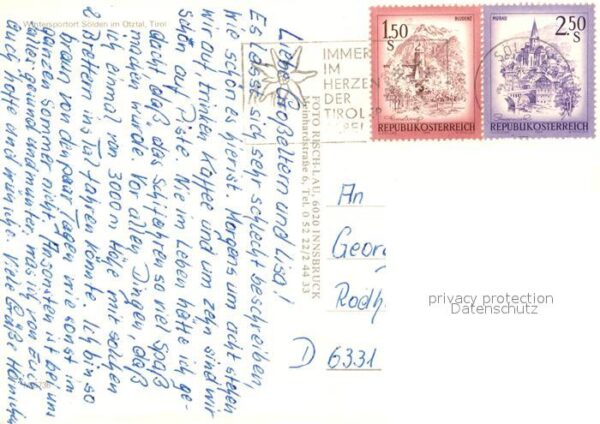 Wintersportort Sölden im Ötztal, Tirol
Liebe Großeltern und Lisa!
Es lässt sich sehr schlecht beschreiben,
wie schön es hier ist. Morgens um acht stehen
wir auf, trinken Kaffee und um zehn sind wir
schon auf Piste. Nie im Leben hätte ich ge-
dacht daß, das Schifahren so viel Spaß
machen würde. Vor allen Dingen, daß
ich einmal von 3000 m Höhe mit solchen
Brettern ins Tal fahren könnte. Ich bin so
braun von den paar Tagen wie sonst im
ganzen Sommer nicht. Ansonsten ist bei uns
alles gesund und munter, was ich von Euch
auch hoffe und wünsche. Viele Grüße
FOTO RISCH-LAU, 6020 INNSBRUCK
Tel. 0 52 22/2 44 33
IMMER
IM
HERZEN
DER
TIROLER
1.50
S
BLUDENZ
REPUBLIK ÖSTERREICH
2.50
S
MURAU
REPUBLIK ÖSTERREICH
An
Georg
Rodh
D 6331
privacy protection
Datenschutz